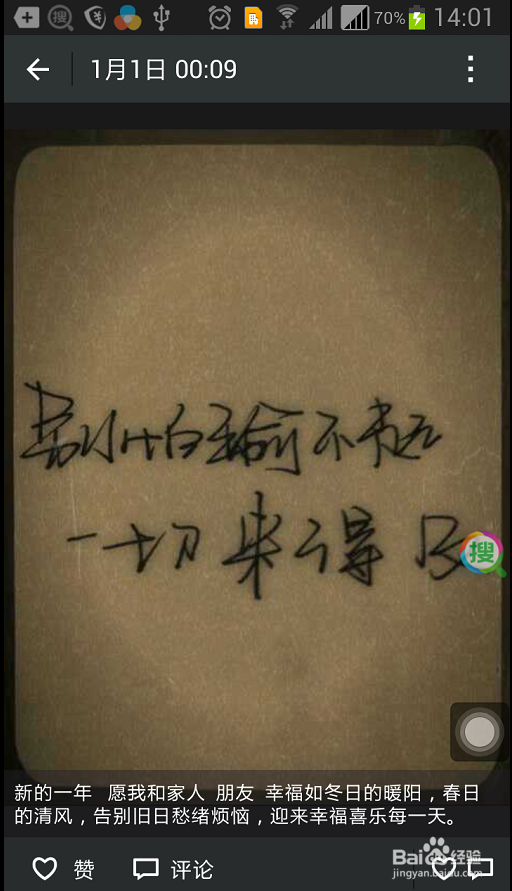 搜 70% 14:01
1月1日 00:09
别怕输不起
一切来得及
搜
新的一年 愿我和家人 朋友 幸福如冬日的暖阳，春日
的清风，告别旧日愁绪烦恼，迎来幸福喜乐每一天。
赞 评论
Baidu经验
jingyan.baidu.com